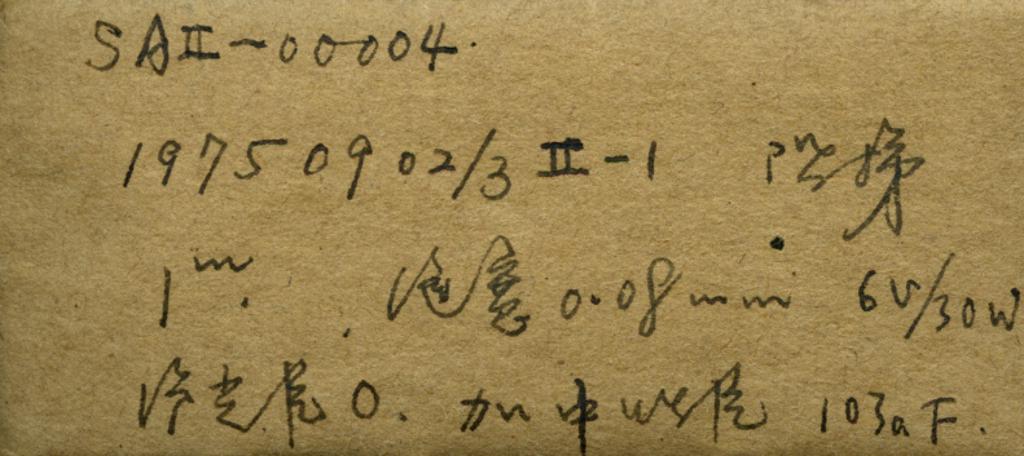 SAII-00004.
1975 09 02/3 II-1 阶梯
1m. 0.08mm 6V/30W
0. 加中 103aF.